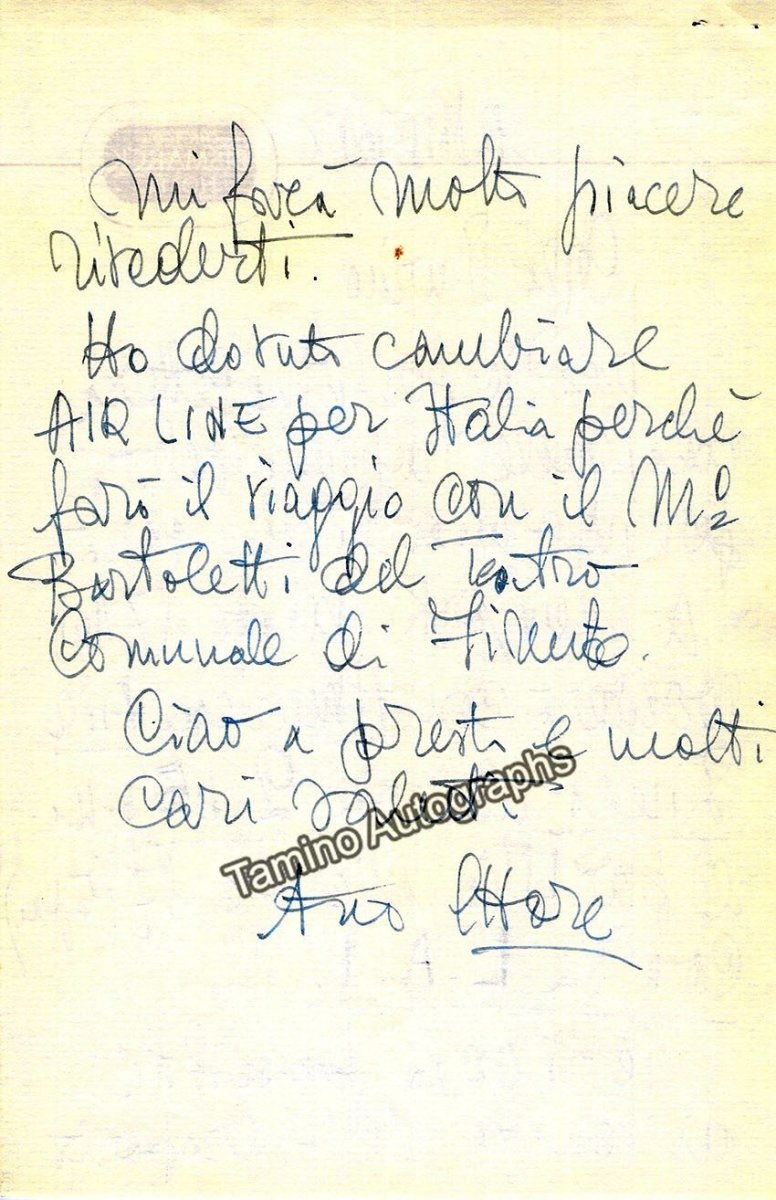 Mi farà molto piacere
rivederti.
Ho dovuto cambiare
AIR LINE per Italia perchè
farò il viaggio con il Mº
Bartoletti del Teatro
Comunale di Firenze.
Ciao a presto e molti
cari saluti
Tamino Autographs
Ettore